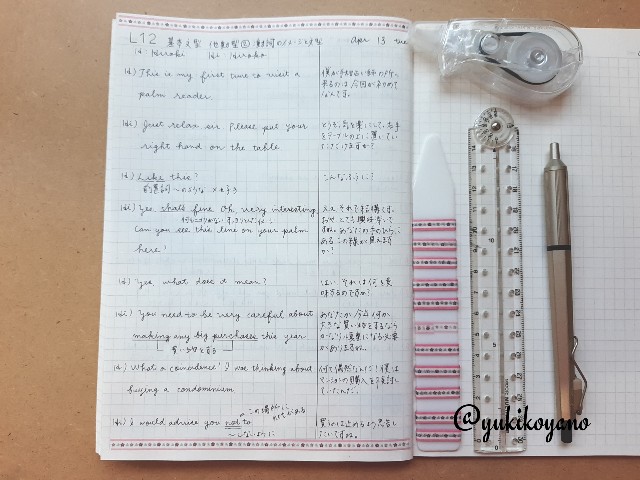 L12 基本文型 Apr 13 tue
H Hiroki Hi Hiroko
H) This is my first time to visit a
palm reader.
僕が手相占い師の所へ
来るのは今回が初めて
なんです。
Hi) Just relax sir. Please put your
right hand on the table
どうぞ、気を楽にして、右手
をテーブルの上に置いてい
ただけますか?
H) Like this?
こんなふうに?
前置詞 〜のような
Hi) Yes, that's fine. Oh, very interesting,
Can you see this line on your palm
here?
ええ、それで結構です。
おや、とても興味深いで
すね。あなたの手のひらに
ある、この線が見えます
か?
H) Yes, what does it mean?
はい、それは何を意
味するのですか?
Hi) You need to be very careful about
making any big purchases this year.
あなたが今年何か
大きな買い物をするなら
かなり慎重になる必要
がありますね。
H) What a coincidence! I was thinking about
buying a condominium.
何て偶然なんだ!僕は
マンションの購入を検討し
ていたんだ。
Hi) I would advise you not to
〜しないように
買うのは止めるよう忠告し
たいですね。
@yukikoyano